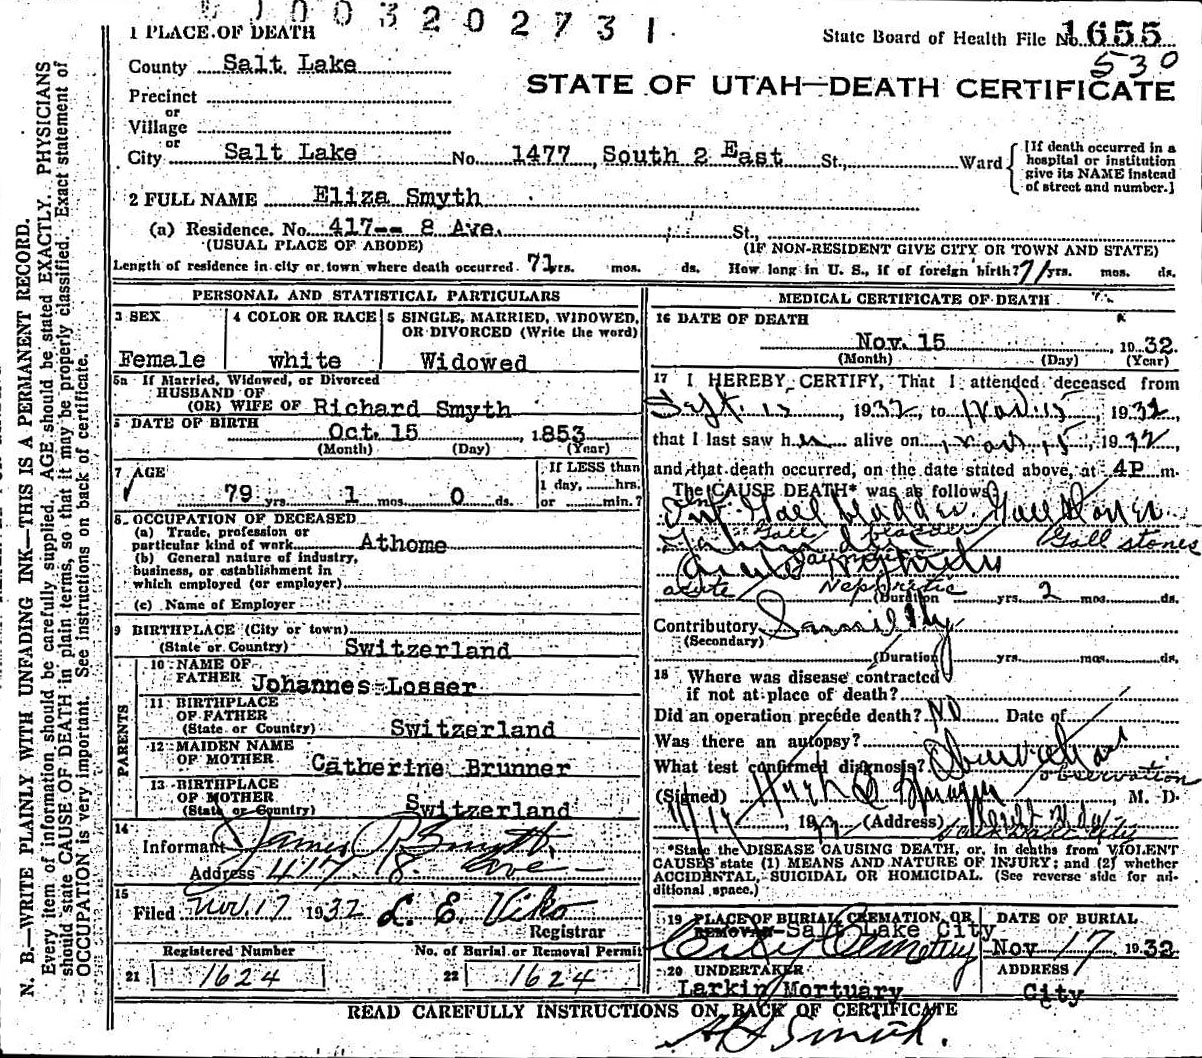 003202731
1 PLACE OF DEATH
State Board of Health File No. 1655
530
County Salt Lake
STATE OF UTAH—DEATH CERTIFICATE
Precinct
or
Village
or
City Salt Lake No. 1477 South 2 East St., Ward
[If death occurred in a hospital or institution give its NAME instead of street and number.]
2 FULL NAME Eliza Smyth
(a) Residence. No. 417-- 8 Ave. St.,
(USUAL PLACE OF ABODE) (IF NON-RESIDENT GIVE CITY OR TOWN AND STATE)
Length of residence in city or town where death occurred 71 yrs. mos. ds. How long in U. S., if of foreign birth? 71 yrs. mos. ds.
PERSONAL AND STATISTICAL PARTICULARS
3 SEX
Female
4 COLOR OR RACE
white
5 SINGLE, MARRIED, WIDOWED, OR DIVORCED (Write the word)
Widowed
5a If Married, Widowed, or Divorced
HUSBAND OF
(OR) WIFE OF Richard Smyth
6 DATE OF BIRTH
Oct. 15 , 1853
(Month) (Day) (Year)
7 AGE
79 yrs. 1 mos. 0 ds.
If LESS than
1 day, hrs.
or min.?
8 OCCUPATION OF DECEASED
(a) Trade, profession or
particular kind of work Athome
(b) General nature of industry,
business, or establishment in
which employed (or employer)
(c) Name of Employer
9 BIRTHPLACE (City or town)
(State or Country) Switzerland
PARENTS
10 NAME OF
FATHER Johannes Losser
11 BIRTHPLACE
OF FATHER
(State or Country) Switzerland
12 MAIDEN NAME
OF MOTHER Catherine Brunner
13 BIRTHPLACE
OF MOTHER
(State or Country) Switzerland
14
Informant James P. Smyth
Address 417 8 ave
15
Filed Nov. 17 1932 L. E. Viko
Registrar
Registered Number
21 1624
No. of Burial or Removal Permit
22 1624
MEDICAL CERTIFICATE OF DEATH
16 DATE OF DEATH
Nov. 15 , 1932.
(Month) (Day) (Year)
17 I HEREBY CERTIFY, That I attended deceased from
Sept. 15 , 1932, to Nov. 15 1932
that I last saw her alive on Nov 15, 1932
and that death occurred, on the date stated above, at 4P m.
The CAUSE DEATH* was as follows
Gall bladder Gall stones
Gall bladder Gall stones
acute Nephritic
(Duration) yrs. 2 mos. ds.
Contributory Senility
(Secondary)
(Duration) yrs. mos. ds.
18 Where was disease contracted
if not at place of death?
Did an operation precede death? No Date of
Was there an autopsy?
What test confirmed diagnosis? Observation
observation
(Signed) Hugh , M. D.
19 (Address)
Salt Lake City
*State the DISEASE CAUSING DEATH, or, in deaths from VIOLENT
CAUSES state (1) MEANS AND NATURE OF INJURY; and (2) whether
ACCIDENTAL, SUICIDAL OR HOMICIDAL. (See reverse side for ad-
ditional space.)
19 PLACE OF BURIAL CREMATION, OR
REMOVAL Salt Lake City
City Cemetery
DATE OF BURIAL
Nov 17 1932
20 UNDERTAKER
Larkin Mortuary
ADDRESS
City
READ CAREFULLY INSTRUCTIONS ON BACK OF CERTIFICATE
Smith.
N. B.—WRITE PLAINLY WITH UNFADING INK—THIS IS A PERMANENT RECORD.
Every item of information should be carefully supplied. AGE should be stated EXACTLY. PHYSICIANS
should state CAUSE OF DEATH in plain terms, so that it may be properly classified. Exact statement of
OCCUPATION is very important. See Instructions on back of certificate.